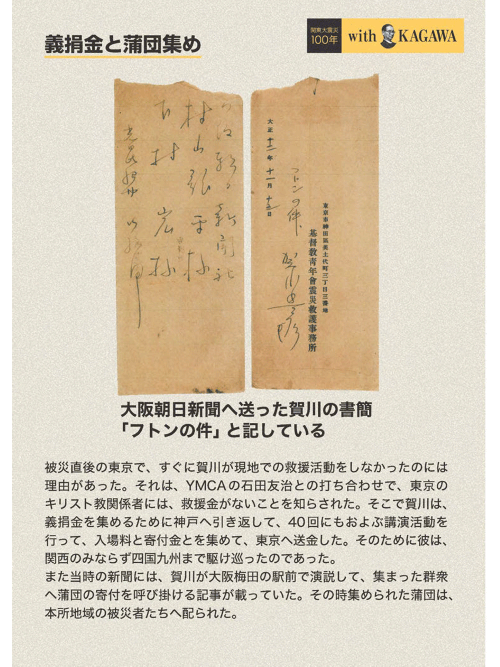 義捐金と蒲団集め
関東大震災
100年
with KAGAWA
大阪朝日新聞社
村山龍平様
下村宏様
大正十二年十一月十五日
フトンの件
賀川豊彦
東京市神田區美土代町三丁目三番地
基督敎青年會震災救護事務所
大阪朝日新聞へ送った賀川の書簡
「フトンの件」と記している
被災直後の東京で、すぐに賀川が現地での救援活動をしなかったのには
理由があった。それは、YMCAの石田友治との打ち合わせで、東京の
キリスト教関係者には、救援金がないことを知らされた。そこで賀川は、
義捐金を集めるために神戸へ引き返して、40回にもおよぶ講演活動を
行って、入場料と寄付金とを集めて、東京へ送金した。そのために彼は、
関西のみならず四国九州まで駆け巡ったのであった。
また当時の新聞には、賀川が大阪梅田の駅前で演説して、集まった群衆
へ蒲団の寄付を呼び掛ける記事が載っていた。その時集められた蒲団は、
本所地域の被災者たちへ配られた。